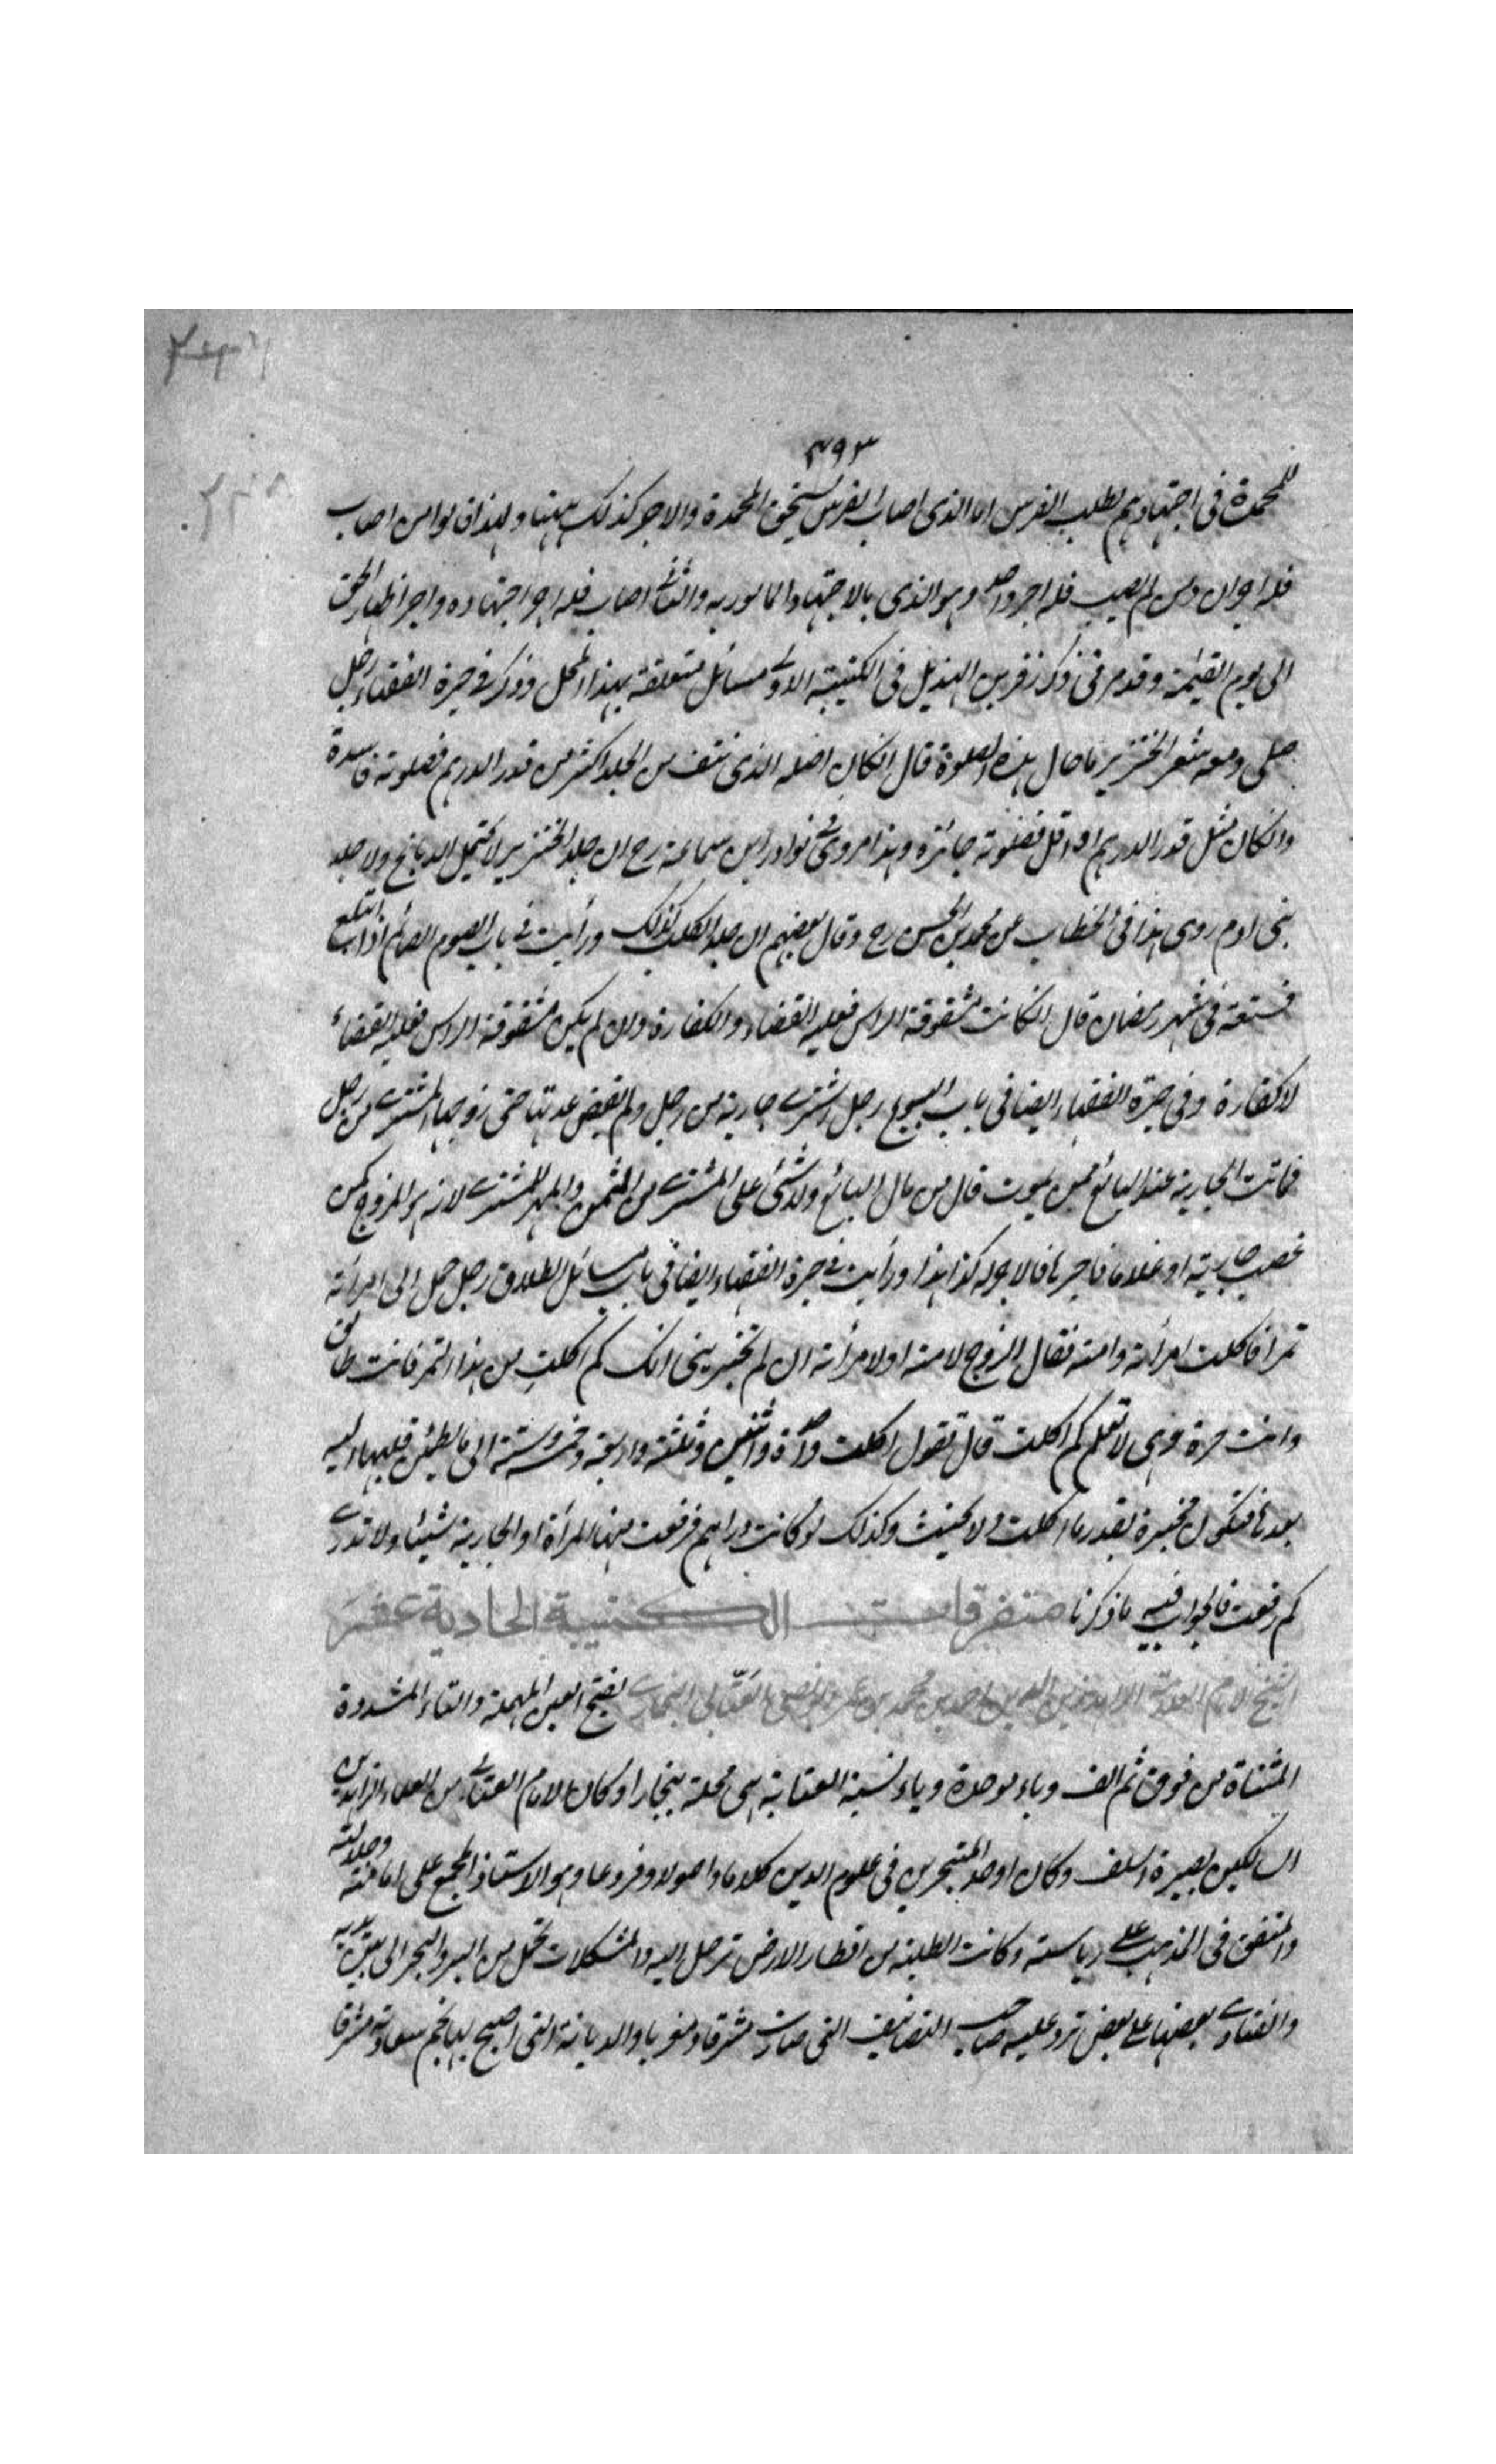 ٣٩٣
للمحمدة فى اجتهادهم لطلب الفرس اما الذى اصاب الفرس يستحق المحمدة والاجر كذلك ههنا ولهذا قالوا من اصاب
فله اجران ومن لم يصب فله اجر واحد وهو الذى بالاجتهاد المامور به والثانى اصاب فله اجر اجتهاده واجر اظهار الحق
الى يوم القيمة وقد مر فى ذكر زفر بن الهذيل فى الكتيبة الاولى مسائل متعلقة بهذا المحل وذكر فى حيرة الفقهاء رجل
صلى ومعه شعر الخنزير ما حال هذه الصلوة قال انكان اصله الذى نتف من الجلد اكثر من قدر الدرهم فصلوته فاسدة
وانكان مثل قدر الدرهم او اقل فصلوته جائزة وهذا مروى فى نوادر ابن سماعة رح ان جلد الخنزير لا يحتمل الدباغ ولا جلد
بنى ادم روى هذا فى الخطاب عن محمد بن الحسن رح وقال بعضهم ان جلد الكلب كذلك ورأيت فى باب الصوم الصائم اذا ابتلع
فستقة فى شهر رمضان قال انكانت مشقوقة الراس فعليه القضاء والكفارة وان لم يكن مشقوقة الراس فعليه القضاء
لا كفارة وفى حيرة الفقهاء ايضا فى باب البيوع رجل اشترى جارية من رجل ولم يقبض حتى زوجها المشترى من رجل
فماتت الجارية عند البائع ممن يموت قال من مال البائع ولا شئ على المشترى من الثمن والمهر للمشترى لانه هو المزوج كمن
غصب جارية او غلاما فاجرها فالاجر له كذا هذا ورأيت فى حيرة الفقهاء ايضا فى باب مسائل الطلاق رجل حمل الى امرأته
تمرا فاكلت امرأته وامته فقال الزوج لامته او لامرأته ان لم تخبرينى انك كم اكلت من هذا التمر فانت طالق
وانت حرة وهى لا تعلم كم اكلت قال تقول اكلت واحدة واثنين وثلثة واربعة وخمسة وستة الى ما يطمئن قلبها اليه
بعدها فتكون مخبرة بقدر ما اكلت ولا يحنث وكذلك لو كانت دراهم فرفعت منها المرأة او الجارية شيئا ولا تدرى
كم رفعت فالجواب فيه ما ذكرنا متفرقات الكتيبة الحادية عشر
الشيخ الامام العلامة الزاهد زين الدين احمد بن محمد بن عمر ابو نصر العتابى البخارى بفتح العين المهملة والتاء المشددة
المثناة من فوق ثم الف وباء موحدة وياء نسبة العتابية هى محلة ببخارا وكان الامام العتابى من العلماء الزاهدين
السالكين بصيرة السلف وكان اوحد المتبحرين فى علوم الدين كلاما واصولا وفروعا وهو الاستاذ المجمع على امامته وجلالته
والمتفق فى المذهب على رياسته وكانت الطلبة من اقطار الارض ترحل اليه والمشكلات تحمل من البر والبحر الى بين يديه
والفتاوى بعضها على بعض ترد عليه صاحب التصانيف التى صارت مشرقا ومغربا والديانة التى اصبح لها نجم سعادته مشرقا